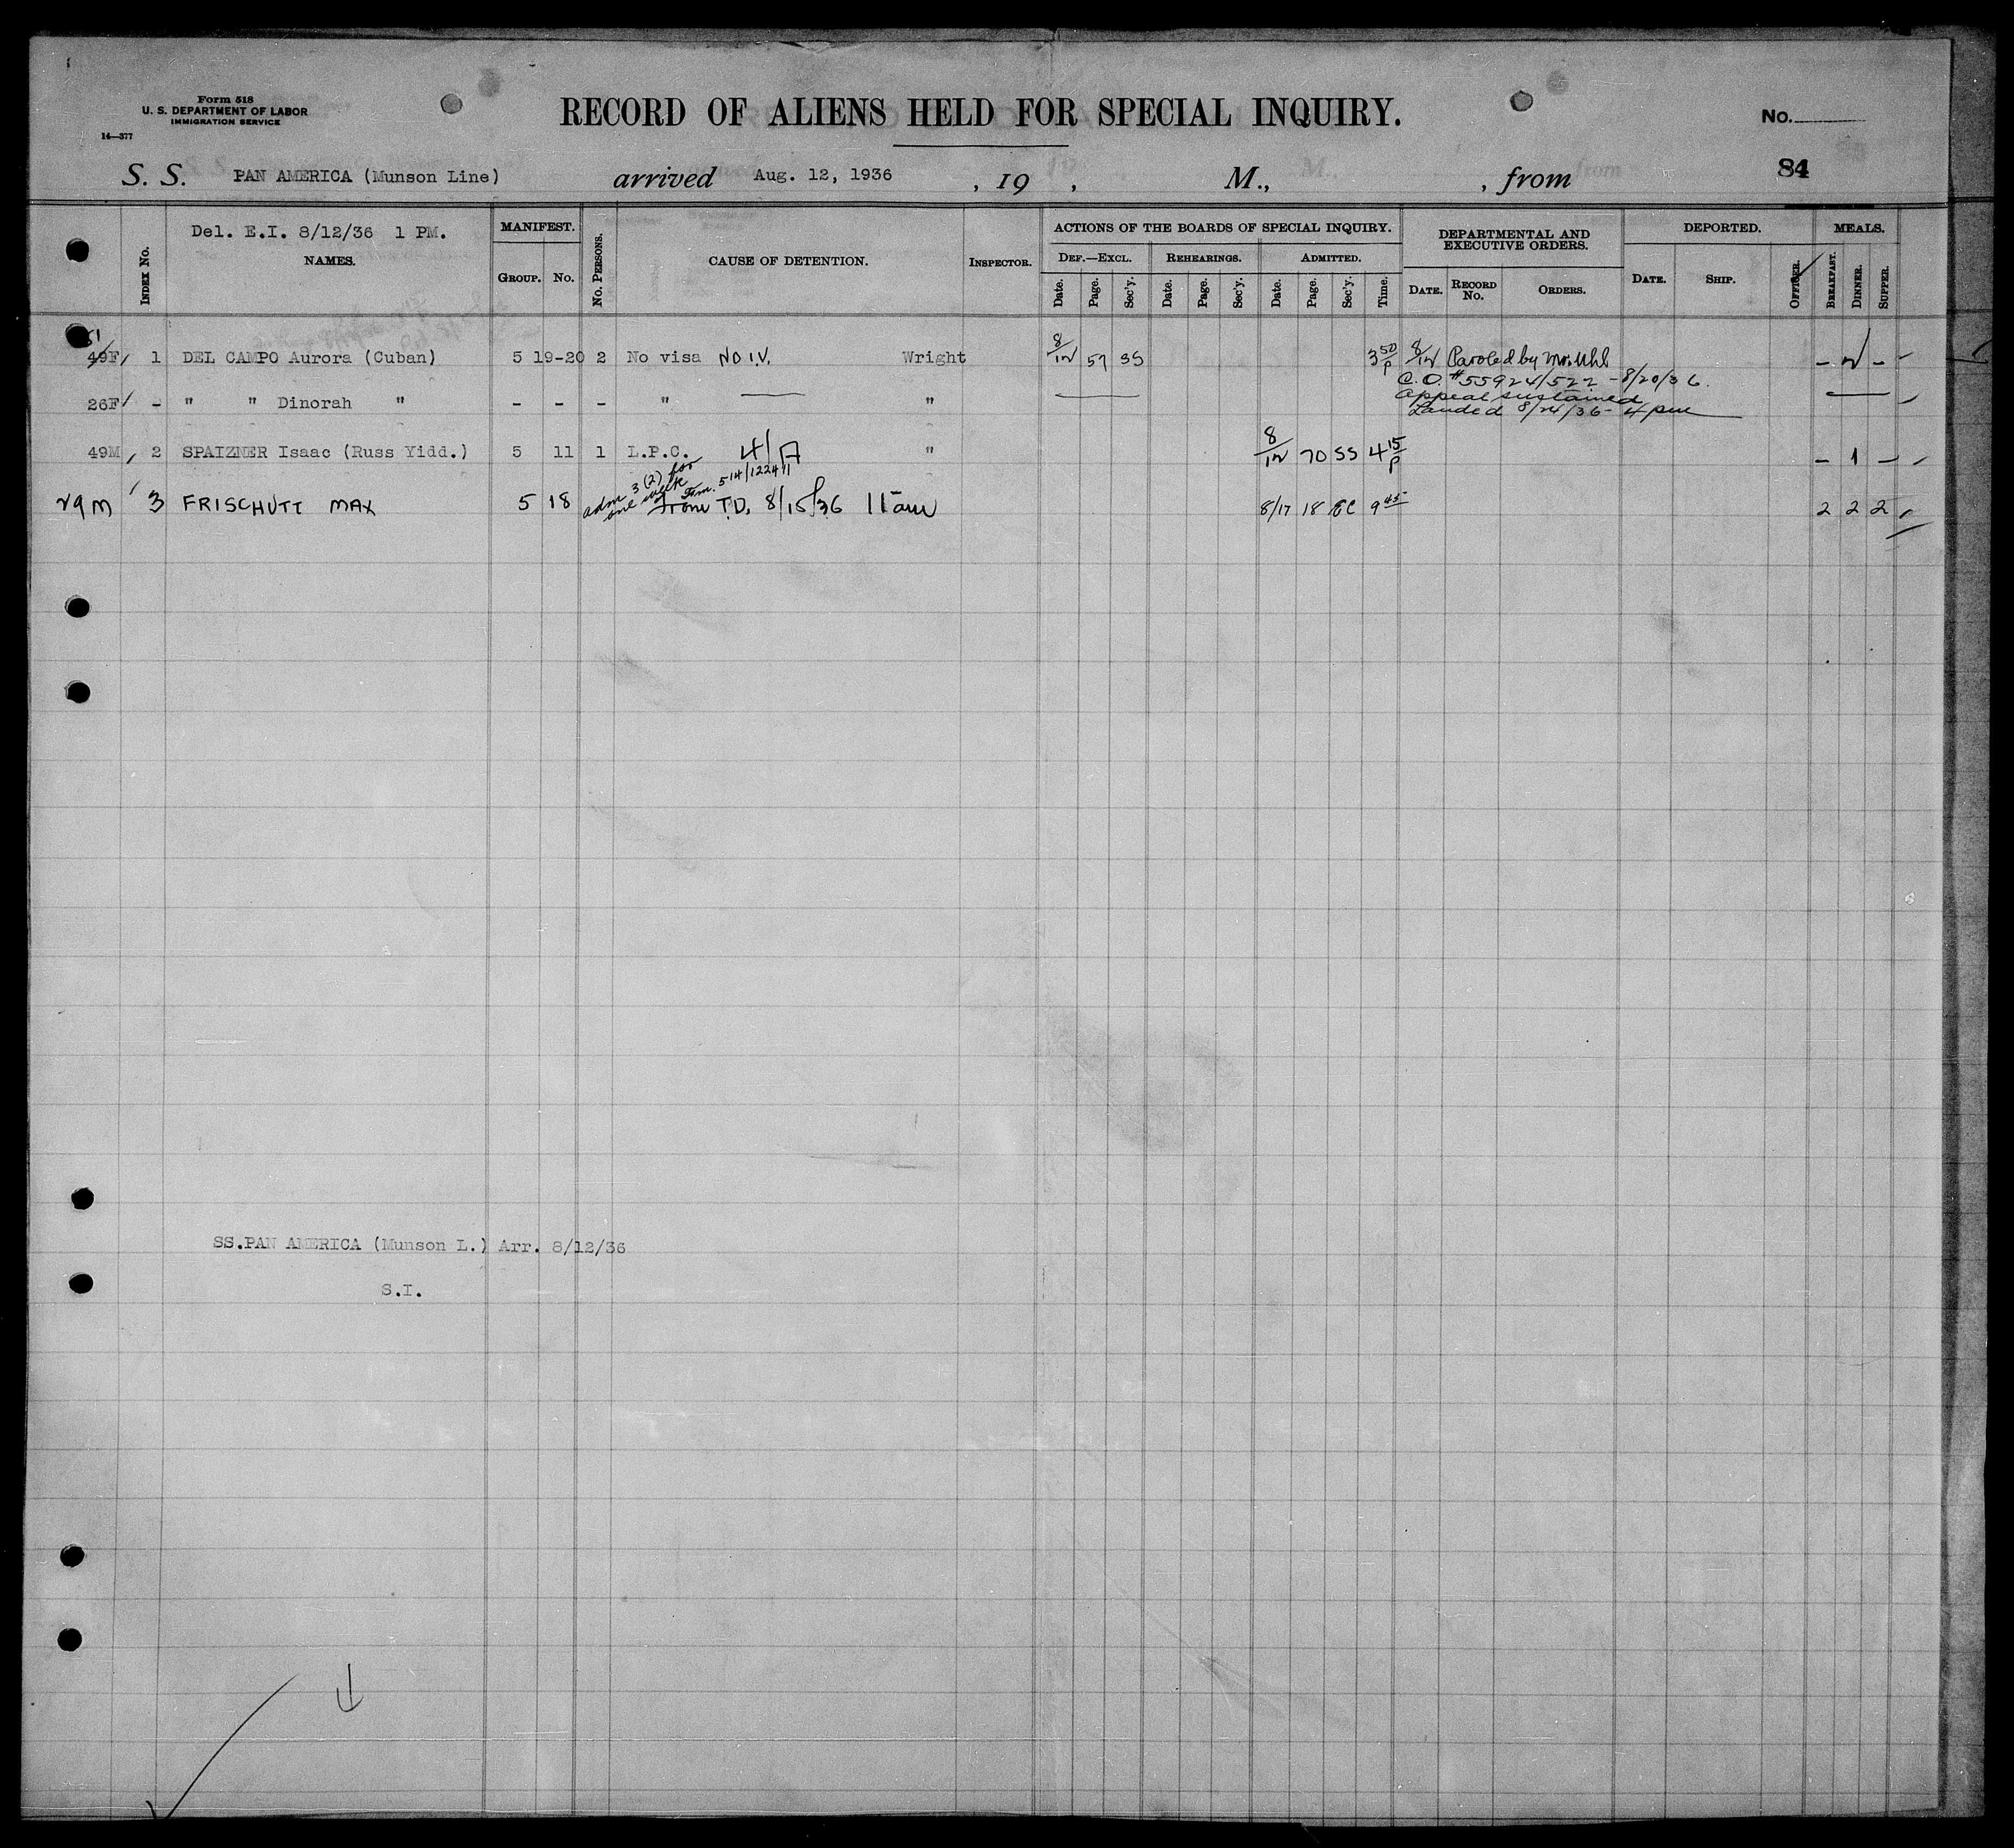 Form 518
U. S. DEPARTMENT OF LABOR
IMMIGRATION SERVICE
14—377
RECORD OF ALIENS HELD FOR SPECIAL INQUIRY.
No.
84
S. S. PAN AMERICA (Munson Line) arrived Aug. 12, 1936 , 19 , M., , from
Del. E.I. 8/12/36 1 PM.
INDEX No. NAMES. MANIFEST. GROUP. No. No. PERSONS. CAUSE OF DETENTION. INSPECTOR.
ACTIONS OF THE BOARDS OF SPECIAL INQUIRY.
DEF.—EXCL. REHEARINGS. ADMITTED.
Date. Page. Sec'y. Date. Page. Sec'y. Date. Page. Sec'y. Time.
DEPARTMENTAL AND EXECUTIVE ORDERS.
DATE. RECORD No. ORDERS.
DEPORTED.
DATE. SHIP. OFFICER.
MEALS.
BREAKFAST. DINNER. SUPPER.
51
49F 1 DEL CAMPO Aurora (Cuban) 5 19-20 2 No visa NO I.V. Wright 8/12 57 SS 3 50 P 8/12 Paroled by Mr. Uhl – 2 –
C.O. #55924/522 - 8/20/36.
26F - " " Dinorah " - - - " "
Appeal sustained
Landed 8/24/36 - 4 pm
49M 2 SPAIZNER Isaac (Russ Yidd.) 5 11 1 L.P.C. 4/A " 8/12 70 SS 4 15 P – 1 –
adm 3(2) for
one week
514/122411
29M 3 FRISCHUTT MAX 5 18 from T.D. 8/15/36 11 am 8/17 18 EC 9 45 2 2 2
SS.PAN AMERICA (Munson L.) Arr. 8/12/36
S.I.